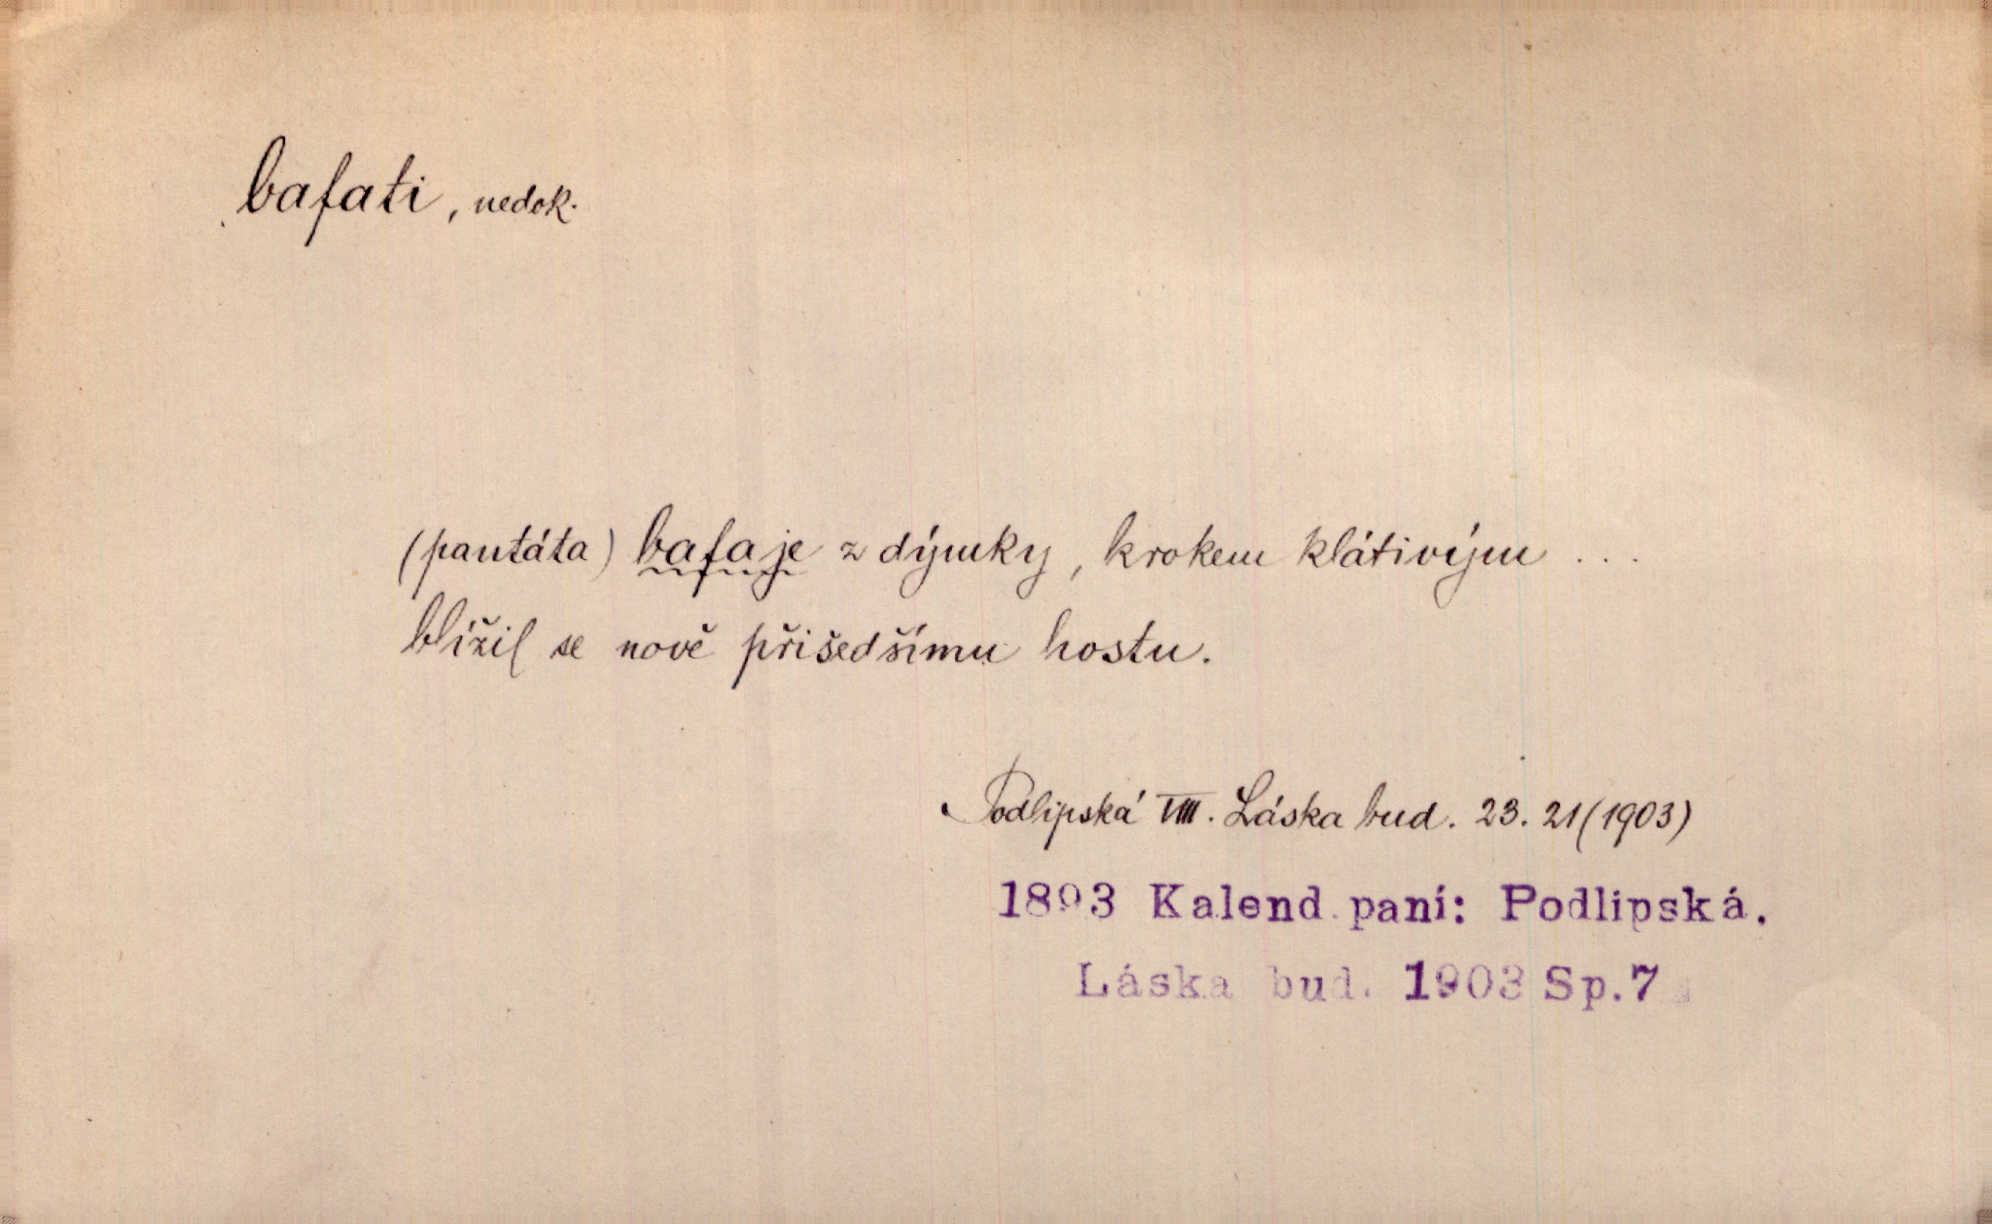 bafati, nedok.
(pantáta) bafaje z dýmky, krokem klátivým ...
blížil se nově přišedšímu hostu.
Podlipská VIII. Láska bud. 23. 21 (1903)
1893 Kalend. paní: Podlipská.
Láska bud. 1903 Sp.7